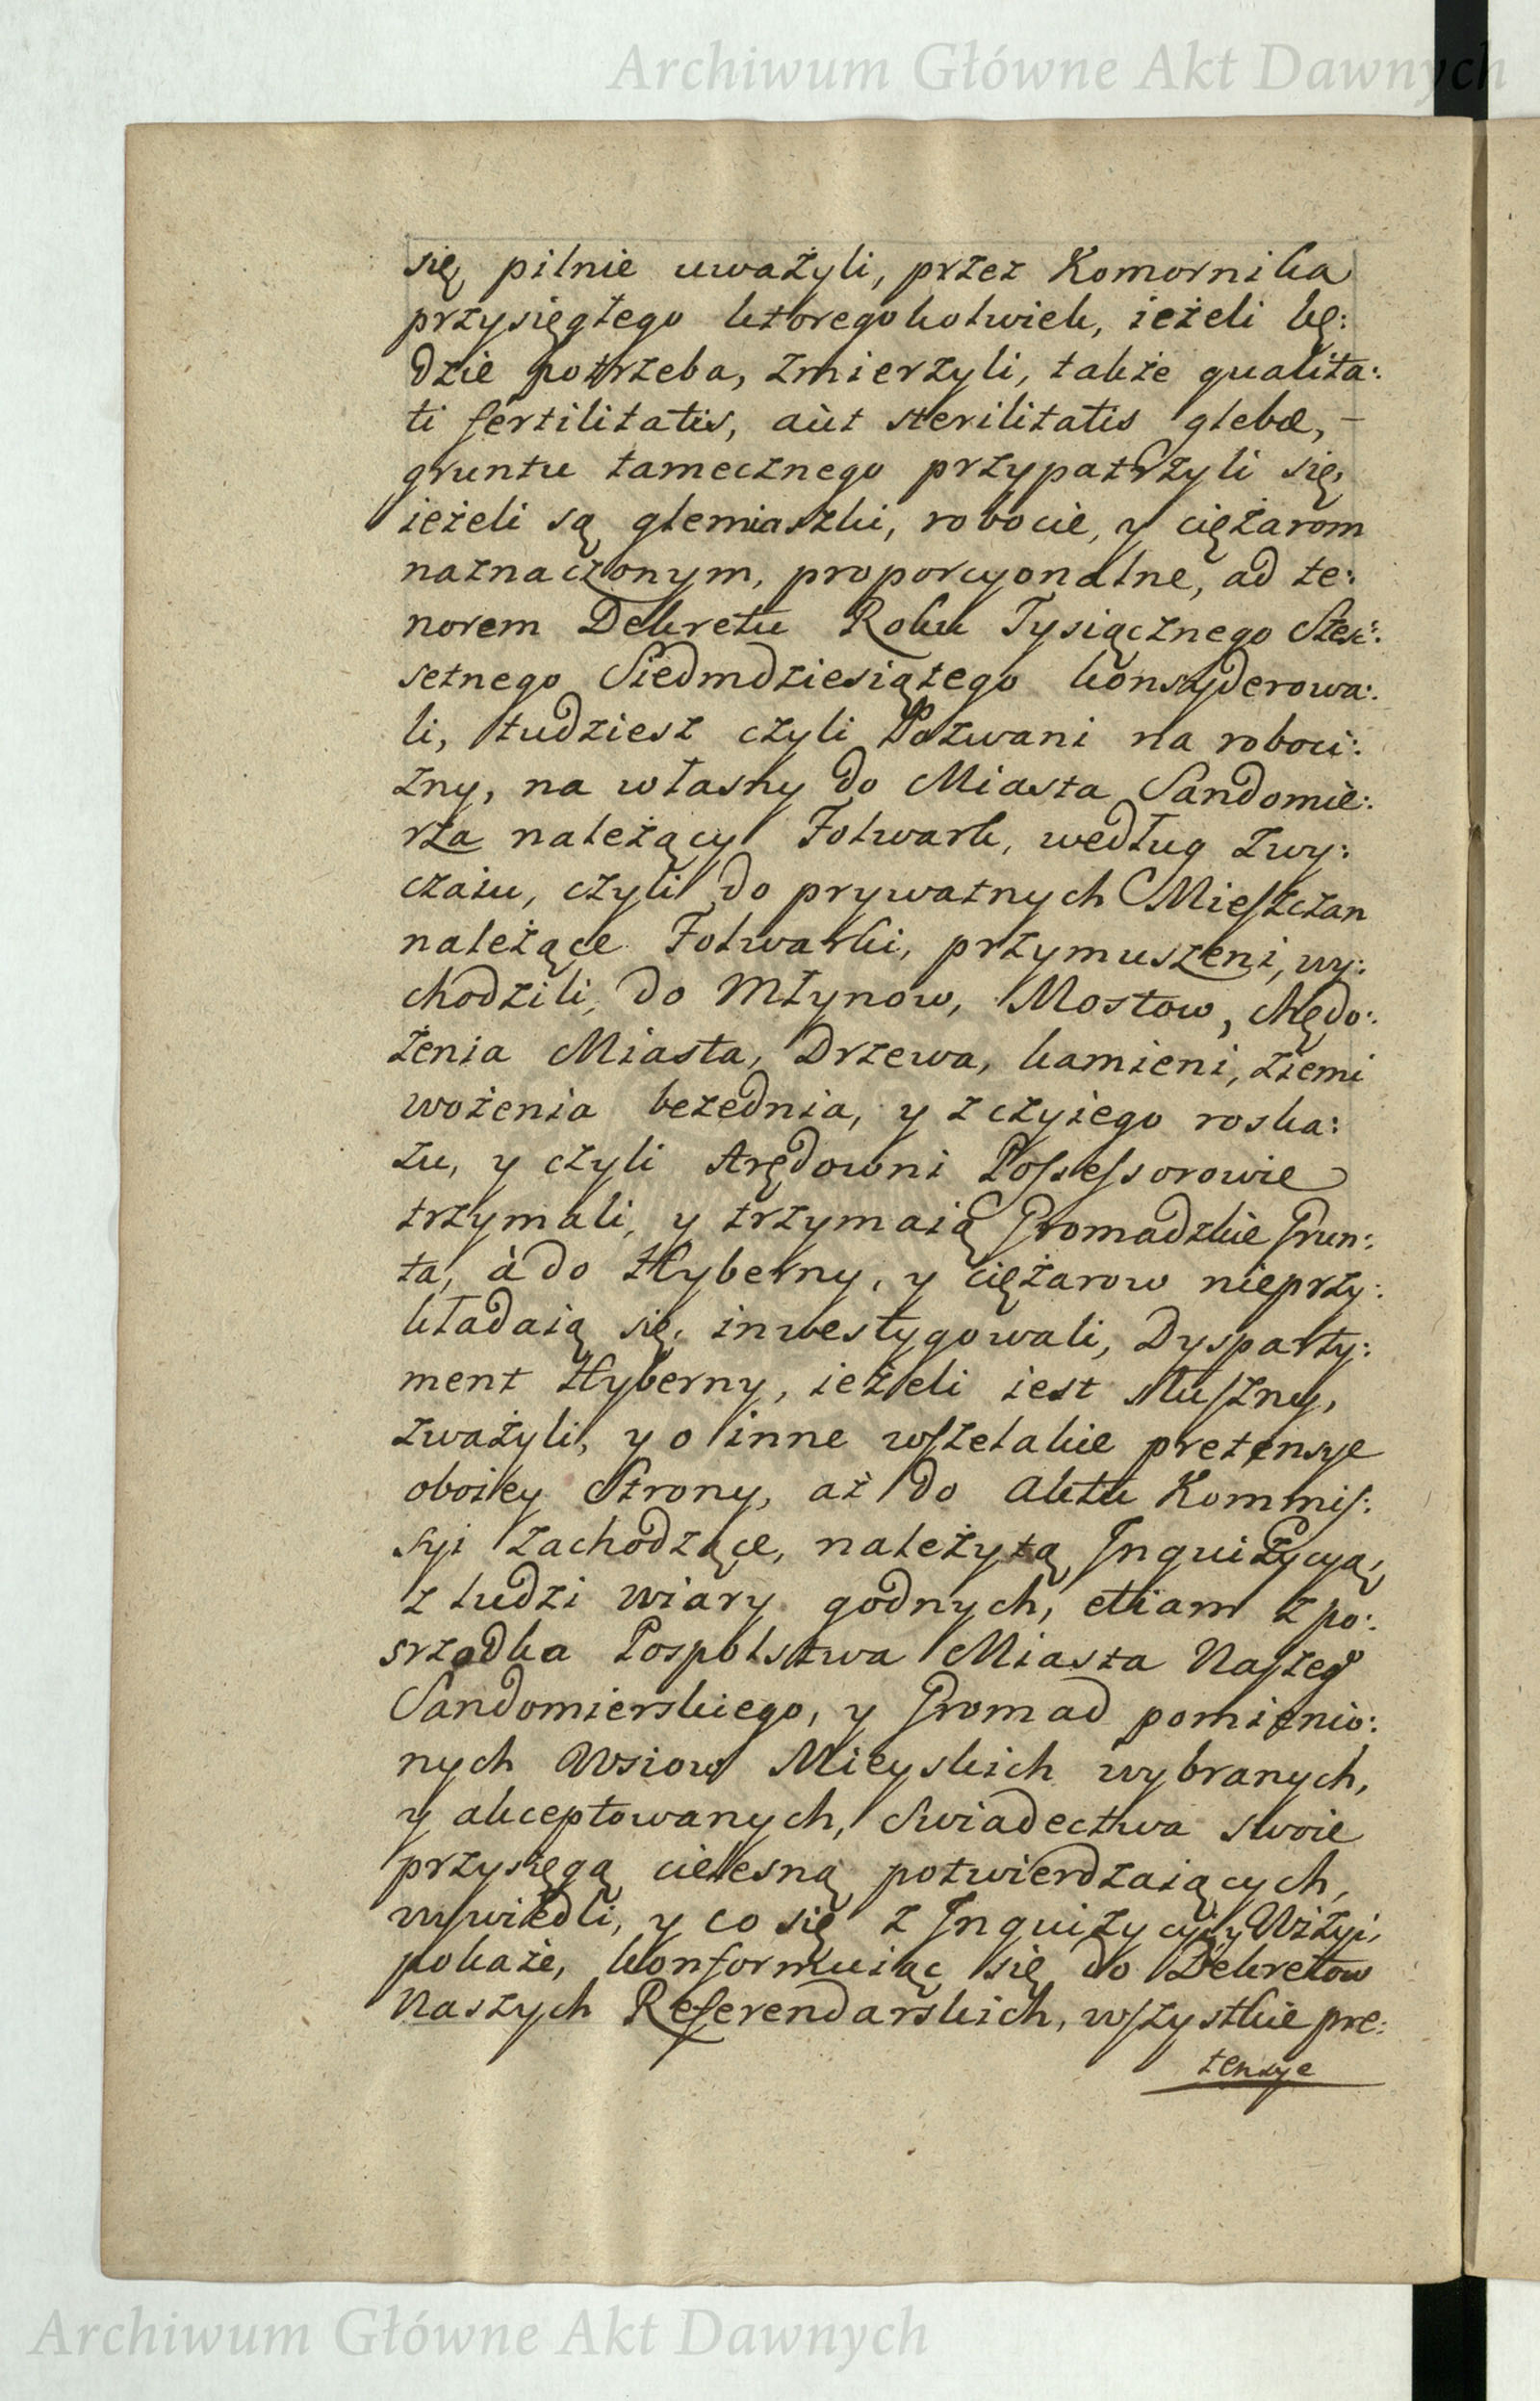 Archiwum Główne Akt Dawnych
się pilnie uważyli, przez Komornika
przysięgłego ktoregokolwiek, ieżeli bę:
dzie potrzeba, zmierzyli, także qualita:
ti fertilitatis, aùt sterilitatis glebæ, –
gruntu tamecznego przypatrzyli się,
ieżeli są glemiaszki, robocie, y ciężarom
naznaczonym, proporcyonalne, ad te:
norem Dekretu Roku Tysiącznego Szeć:
setnego Siedmdziesiątego konsyderowa:
li, tudziesz czyli Pozwani na roboci:
zny, na własny do Miasta Sandomie:
rza należący Folwark, według zwy:
czaiu, czyli do prywatnych Mieszczan
należące Folwarki, przymuszeni, wy:
chodzili, do Młynow, Mostow, chędo:
żenia Miasta, Drzewa, kamieni, ziemi
wożenia bezednia, y z czyiego roska:
zu, y czyli Arędowni Possessorowie
trzymali, y trzymaią Gromadzkie Grun:
ta, à do Hyberny, y ciężarow nieprzy:
kładaią się, inwestygowali, Dysparty:
ment Hyberny, ieżeli iest słuszny,
zważyli, y o inne wszelakie pretensye
oboiey Strony, aż do Aktu Kommis:
syi zachodzące, należytą Inquizycyą,
z ludzi wiary godnych, etiam z po:
srzodka Pospolstwa Miasta Naszego
Sandomierskiego, y Gromad pomienio:
nych Wsiow Mieyskich wybranych,
y akceptowanych, Swiadectwa swoie
przysięgą cielesną potwierdzaiących,
wywiedli, y co się z Inquizycyi, y Wizyi,
pokaże, konformuiąc się do Dekretow
Naszych Referendarskich, wszystkie pre:
tensye
Archiwum Główne Akt Dawnych